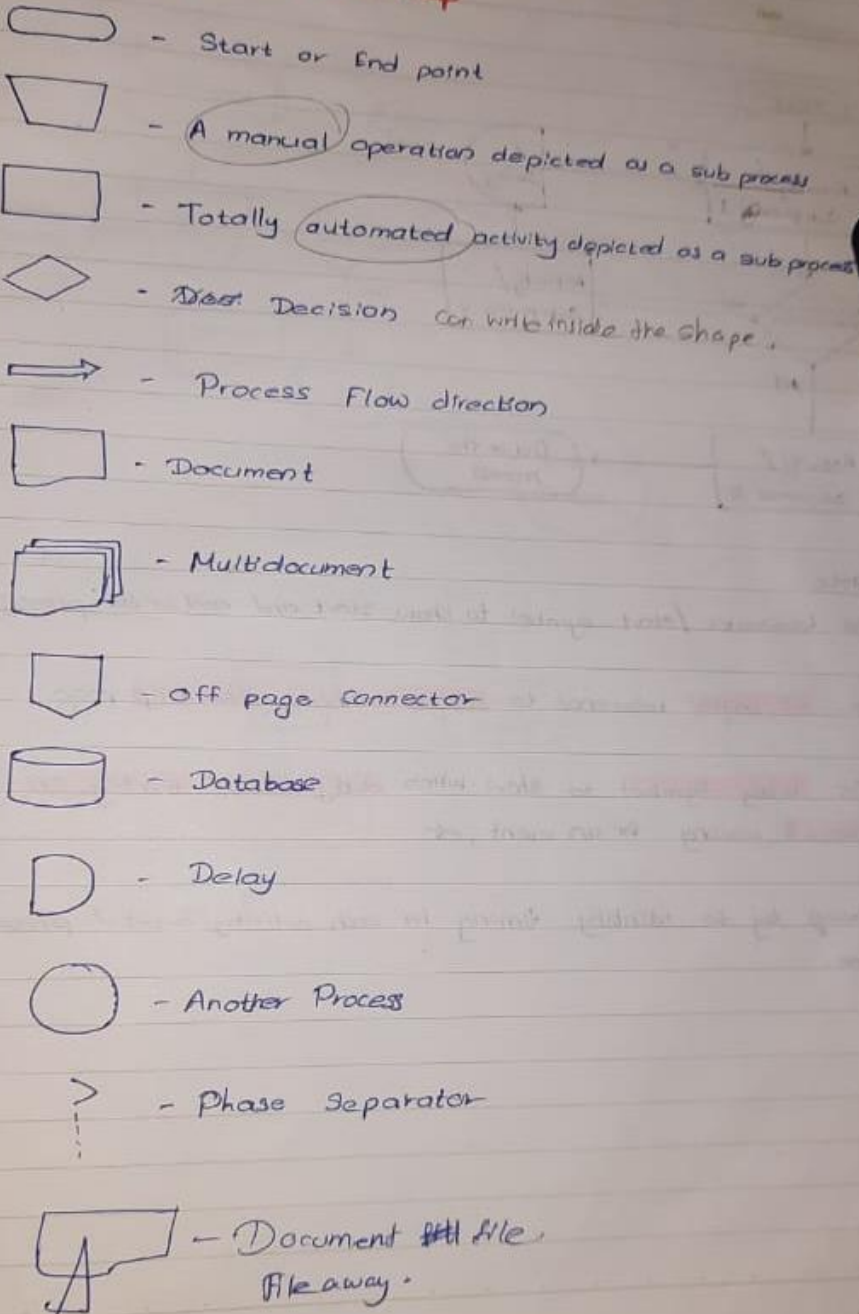 - Start or End point
- A manual operation depicted as a sub process
- Totally automated activity depicted as a sub process
- Decision can write inside the shape.
- Process Flow direction
- Document
- Multidocument
- Off page connector
- Database
- Delay
- Another Process
- Phase Separator
- Document file.
File away.